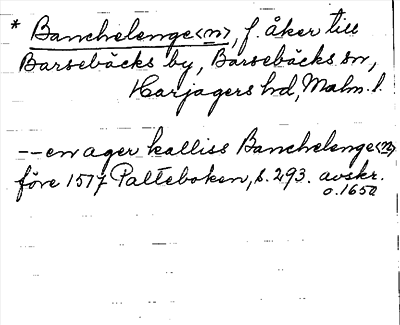 * Banchelenge<n>, f. åker till
Barsebäcks by, Barsebäcks sn,
Harjagers hd, Malm. l.
--en ager kalliss Banchelenge<n>
före 1517 Palteboken, s. 293. avskr.
o. 1650